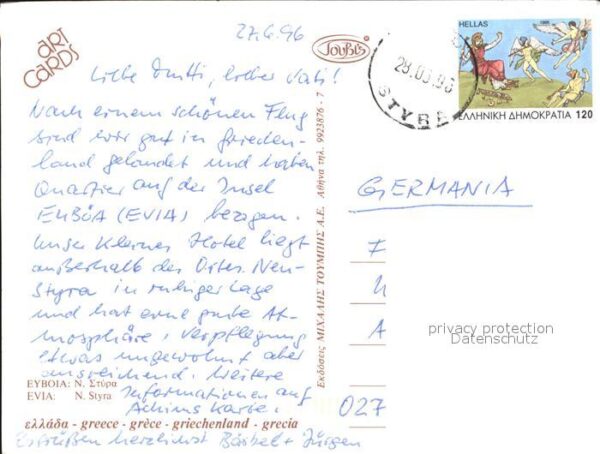 27.6.96
ART CARDS
Toubis
HELLAS
1995
28.06.96
STYRE
ΕΛΛΗΝΙΚΗ ΔΗΜΟΚΡΑΤΙΑ 120
Liebe Mutti, lieber Vati!
Nach einem schönen Flug
sind wir gut in Griechen-
land gelandet und haben
Quartier auf der Insel
EUBÖA (EVIA) bezogen.
Unser kleines Hotel liegt
außerhalb des Ortes Neu-
Styra in ruhiger Lage
und hat eine gute At-
mosphäre, Verpflegung
etwas ungewohnt aber
ausreichend. Weitere
Informationen auf
Achims Karte.
Es grüßen herzlichst Bärbel + Jürgen
ΕΥΒΟΙΑ: Ν. Στύρα
EVIA: N. Styra
ελλάδα - greece - grèce - griechenland - grecia
Εκδόσεις ΜΙΧΑΛΗΣ ΤΟΥΜΠΗΣ Α.Ε. Αθήνα τηλ. 9923876 - 7
GERMANIA
027
privacy protection
Datenschutz